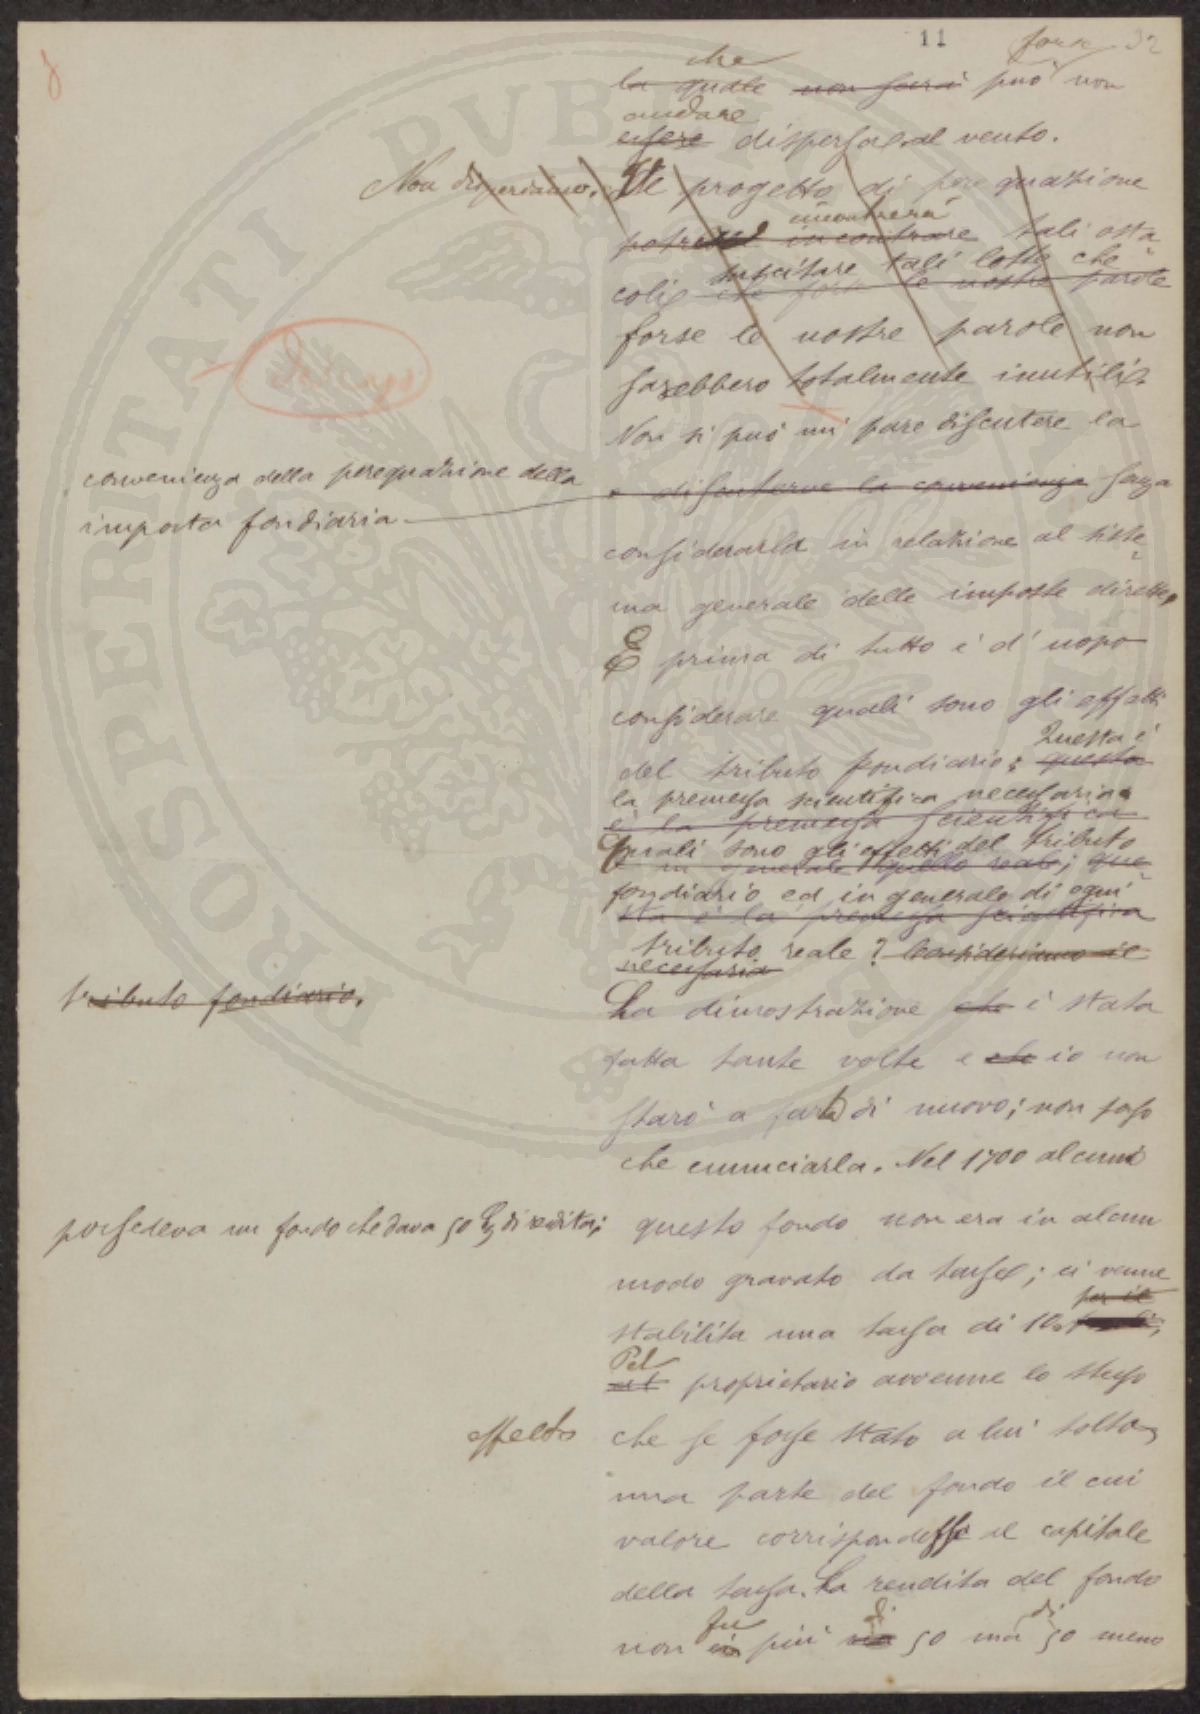 11 forse 32
che
la quale non sarà può non
andare
essere dispersa al vento.
Non disperdiamo. Il progetto di perequazione
incontrerà
potrebbe incontrare tali osta-
suscitare tali lotte che
coli che forse le nostre parole
forse le nostre parole non
sarebbero totalmente inutili.
Non si può mi pare discutere la
convenienza della perequazione della
e discuterne la convenienza senza
imposta fondiaria
considerarla in relazione al siste-
ma generale delle imposte dirette,
E prima di tutto è d'uopo
considerare quali sono gli effetti
Questa è
del tributo fondiario; questa
la premessa scientifica necessaria
è la premessa scientifica
Quali sono gli effetti del tributo
e in generale quello reale; que-
fondiario ed in generale di ogni
sta è la premessa scientifica
tributo reale? Consideriamo il
necessaria
tributo fondiario.
La dimostrazione che è stata
fatta tante volte e che io non
starò a farla di nuovo; non fo
che enunciarla. Nel 1700 alcuni
possedeva un fondo che dava 50 di rendita;
questo fondo non era in alcun
modo gravato da tasse; ci venne
per il
stabilita una tassa di 10
Pel
proprietario avvenne lo stesso
effetto
che se fosse stato a lui tolta
una parte del fondo il cui
valore corrispondesse il capitale
della tassa. La rendita del fondo
fu di di
non è più 50 ma 50 meno
PROSPERITATI PUBLICAE